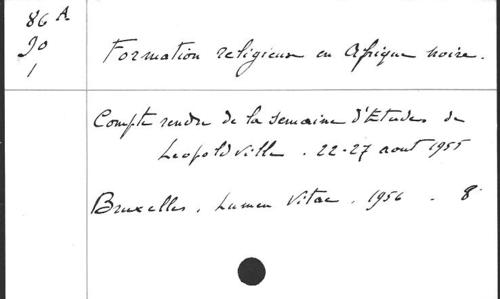 86 A
20
1
Formation religieuse en Afrique noire.
Compte rendu de la semaine d'Etudes de
Leopoldville. 22-27 aout 1955
Bruxelles, Lumen Vitae, 1956. 8°